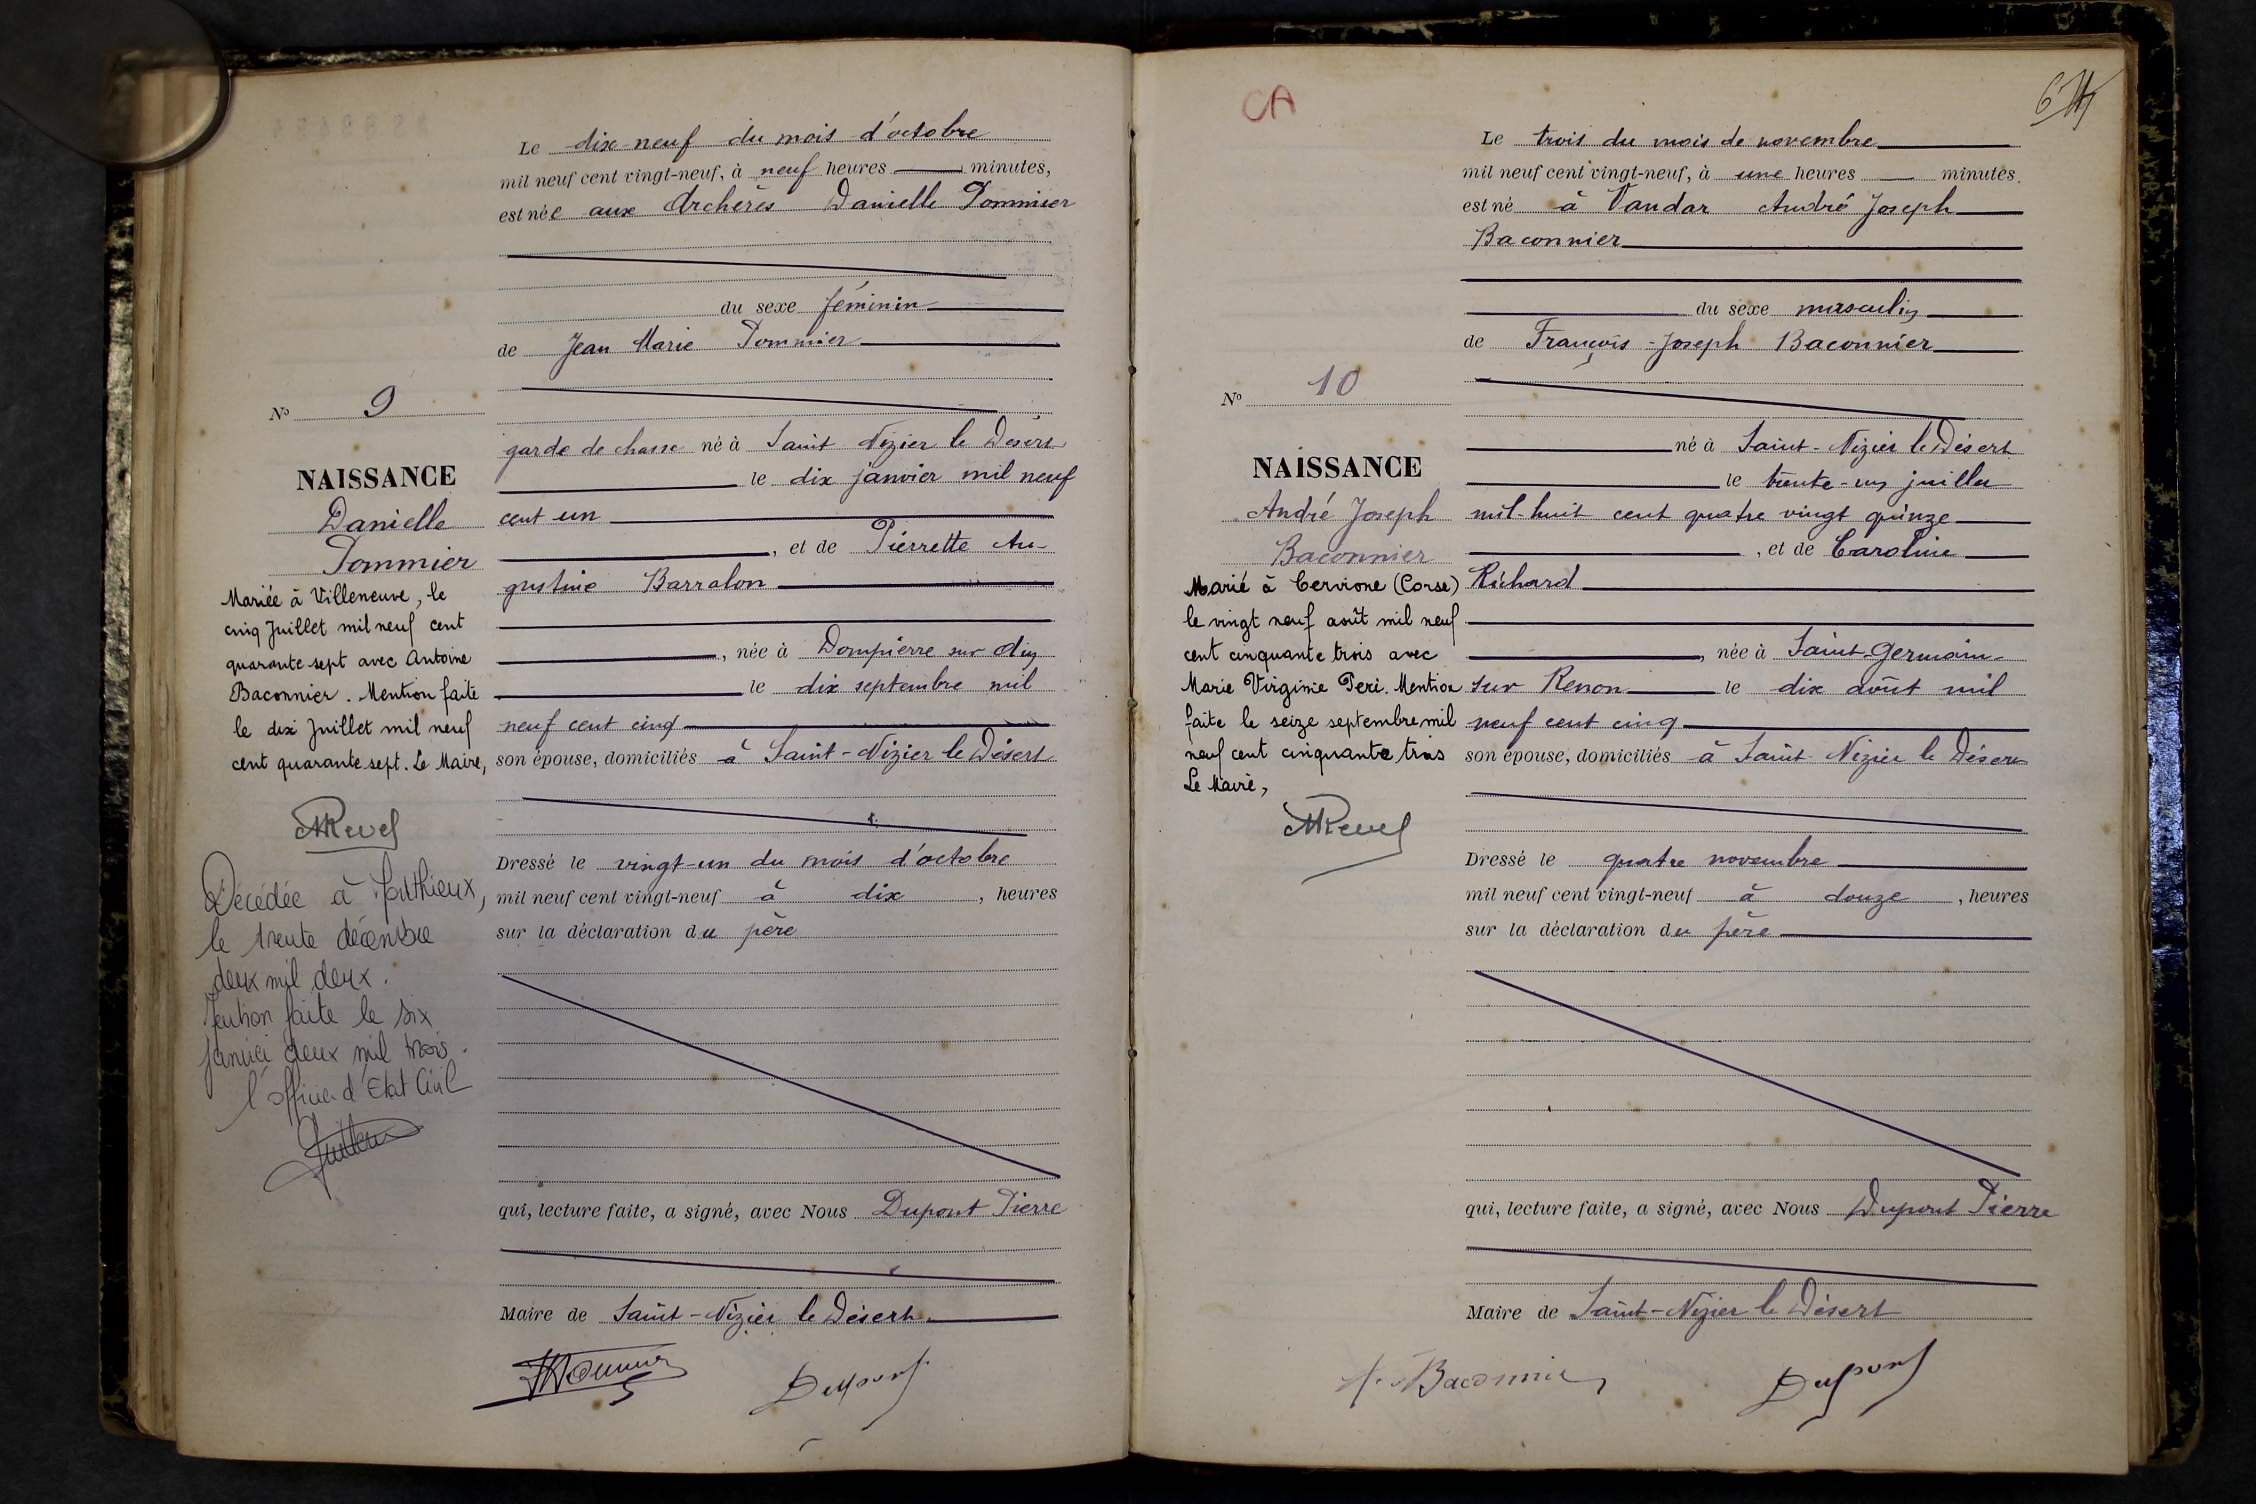 Le dix-neuf du mois d'octobre
mil neuf cent vingt-neuf, à neuf heures minutes,
est née aux Archères Danielle Pommier
du sexe féminin
de Jean Marie Pommier
garde de chasse né à Saint Nizier le Désert
le dix janvier mil neuf
cent un
, et de Pierrette Au-
gustine Barralon
, née à Dompierre sur
le dix septembre mil
neuf cent cinq
son épouse, domiciliés à Saint-Nizier le Désert
Dressé le vingt-un du mois d'octobre
mil neuf cent vingt-neuf à dix, heures
sur la déclaration du père
qui, lecture faite, a signé, avec Nous Dupont Pierre
Maire de Saint-Nizier le Désert
Dupont
No 9
NAISSANCE
Danielle
Pommier
Mariée à Villeneuve, le
cinq Juillet mil neuf cent
quarante sept avec Antoine
Baconnier. Mention faite
le dix Juillet mil neuf
cent quarante sept. Le Maire,
Décédée à Monthieux,
le trente décembre
deux mil deux.
Mention faite le six
janvier deux mil trois.
l'officier d'Etat Civil
CA
Le trois du mois de novembre
mil neuf cent vingt-neuf, à une heures minutes.
est né à Vandar André Joseph
Baconnier
du sexe masculin
de François-Joseph Baconnier
né à Saint-Nizier le Désert
le trente-un juillet
mil-huit cent quatre vingt quinze
, et de Caroline
Richard
, née à Saint-Germain-
sur Renon le dix août mil
neuf cent cinq
son épouse, domiciliés à Saint Nizier le Désert
Dressé le quatre novembre
mil neuf cent vingt-neuf à douze, heures
sur la déclaration du père
qui, lecture faite, a signé, avec Nous Dupont Pierre
Maire de Saint-Nizier le Désert
Baconnier
Dupont
No 10
NAISSANCE
André Joseph
Baconnier
Marié à Cervione (Corse)
le vingt neuf août mil neuf
cent cinquante trois avec
Marie Virginie Peri. Mention
faite le seize septembre mil
neuf cent cinquante trois
Le Maire,